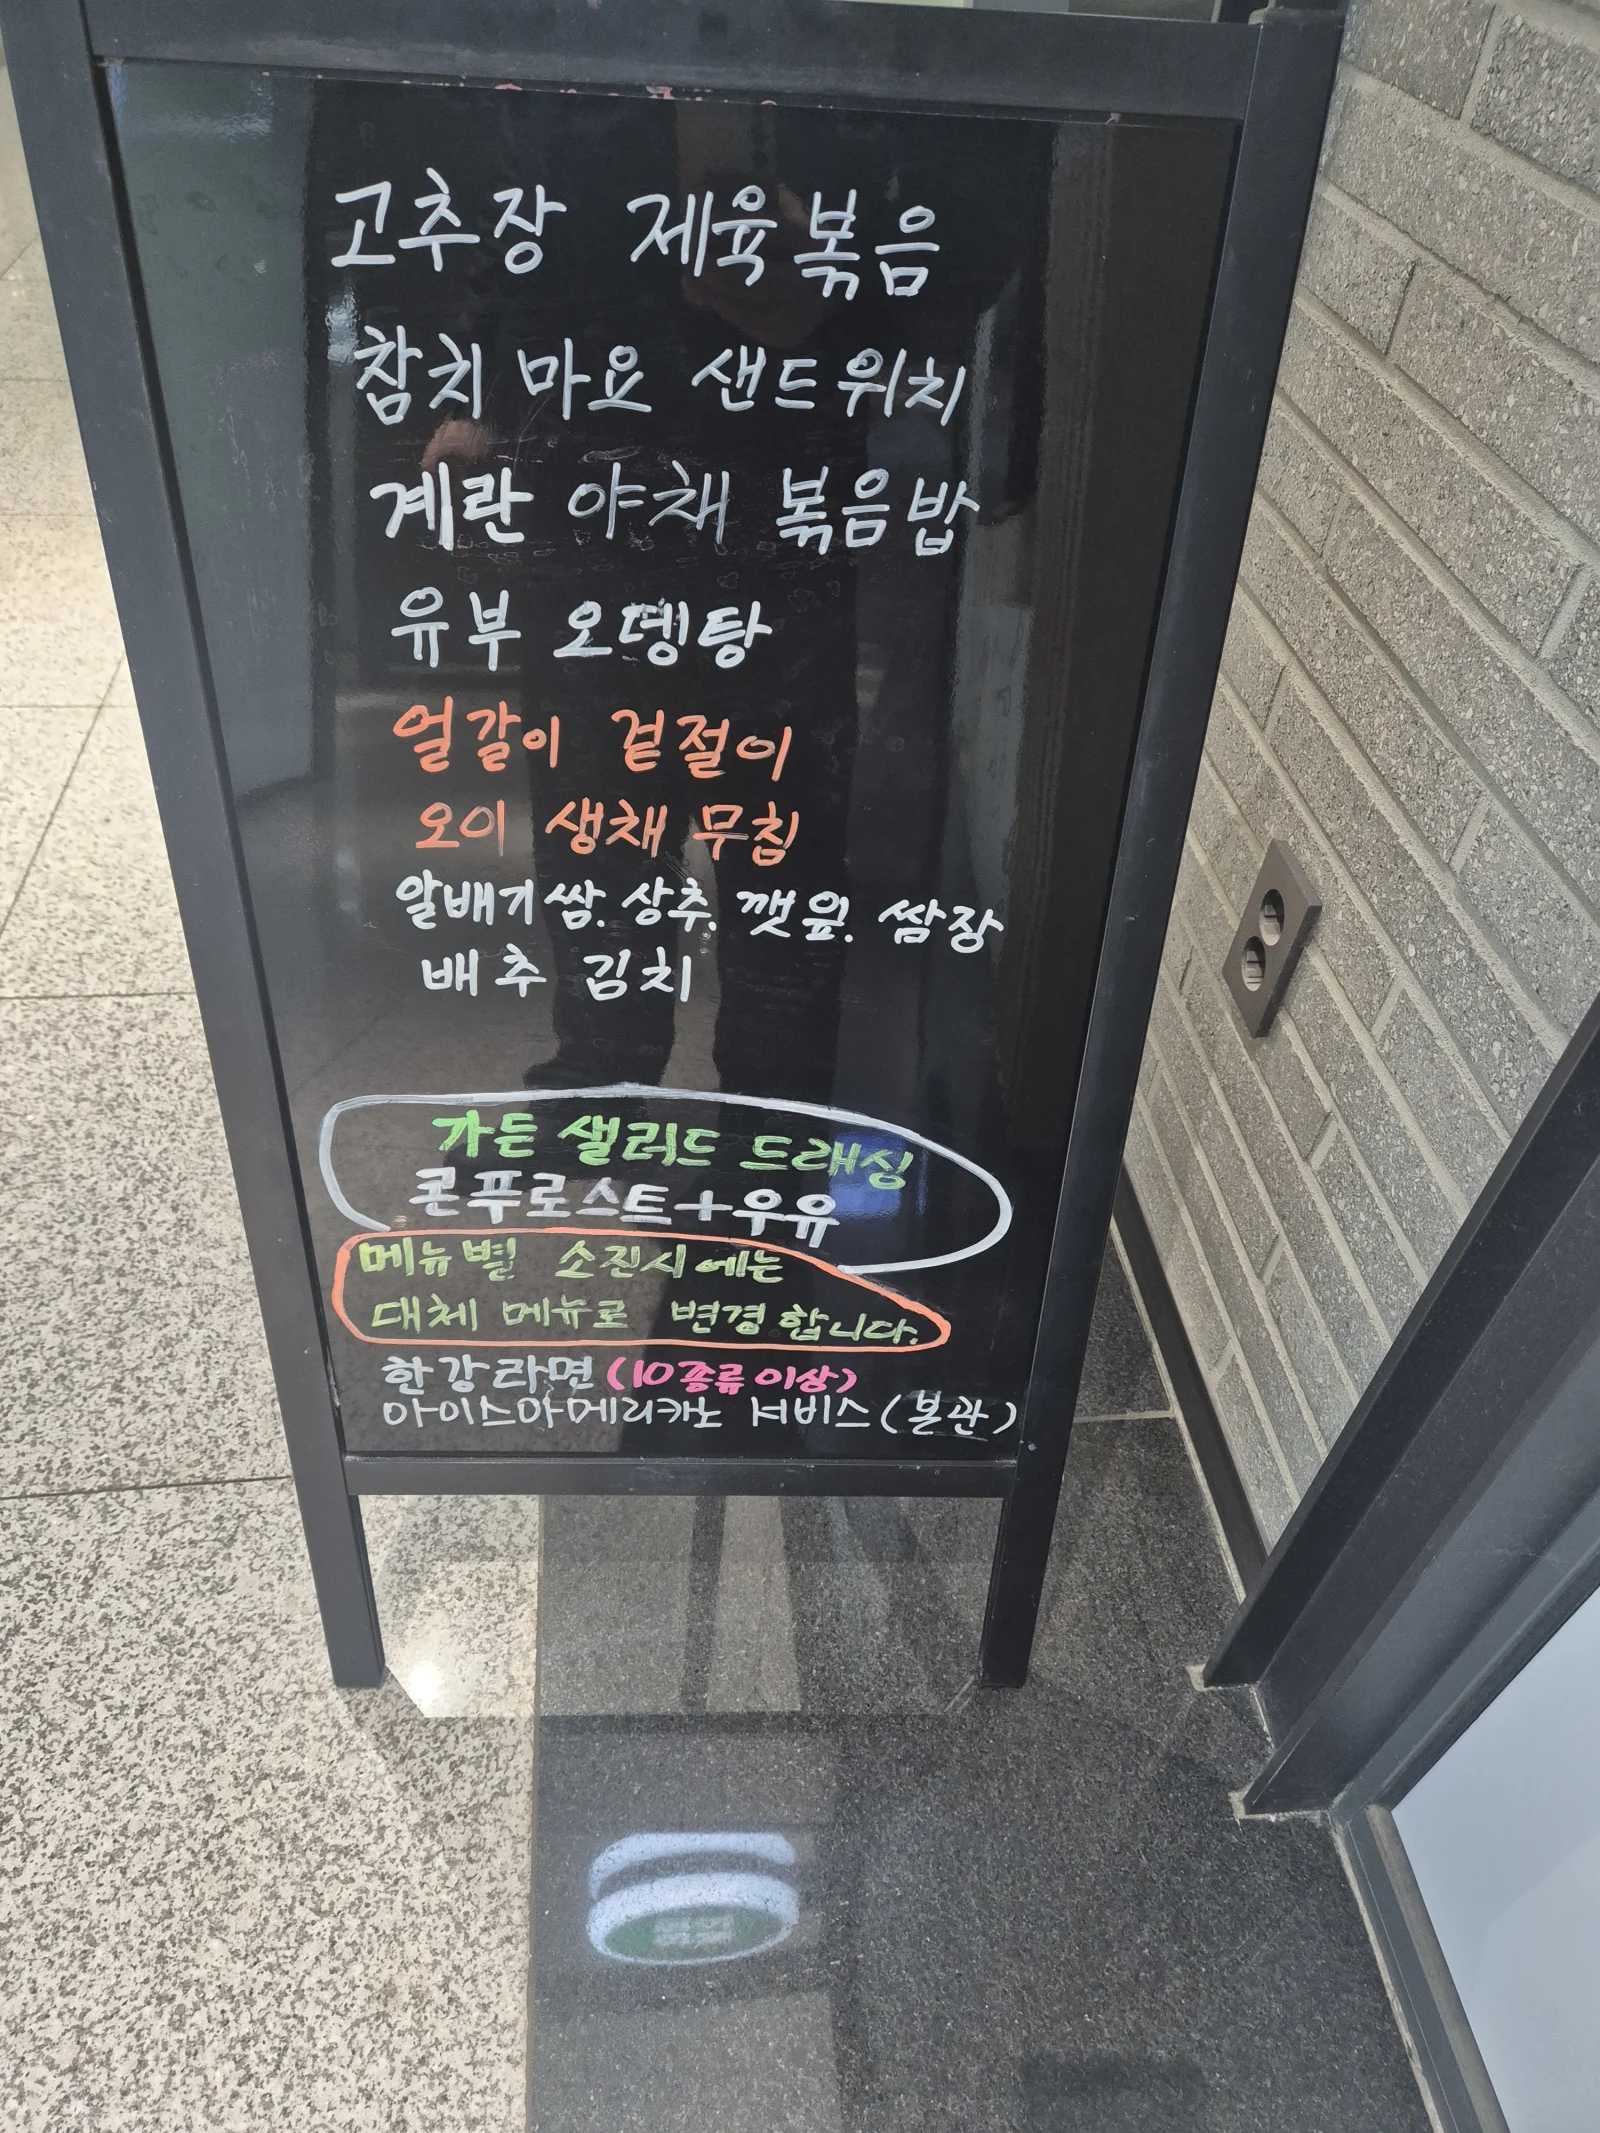 고추장 제육볶음
참치 마요 샌드위치
계란 야채 볶음밥
유부 오뎅탕
얼갈이 겉절이
오이 생채 무침
알배기쌈. 상추. 깻잎. 쌈장
배추 김치
가든 샐러드 드래싱
콘푸로스트+우유
메뉴별 소진시에는
대체 메뉴로 변경합니다.
한강라면(10종류이상)
아이스아메리카노 서비스(본관)